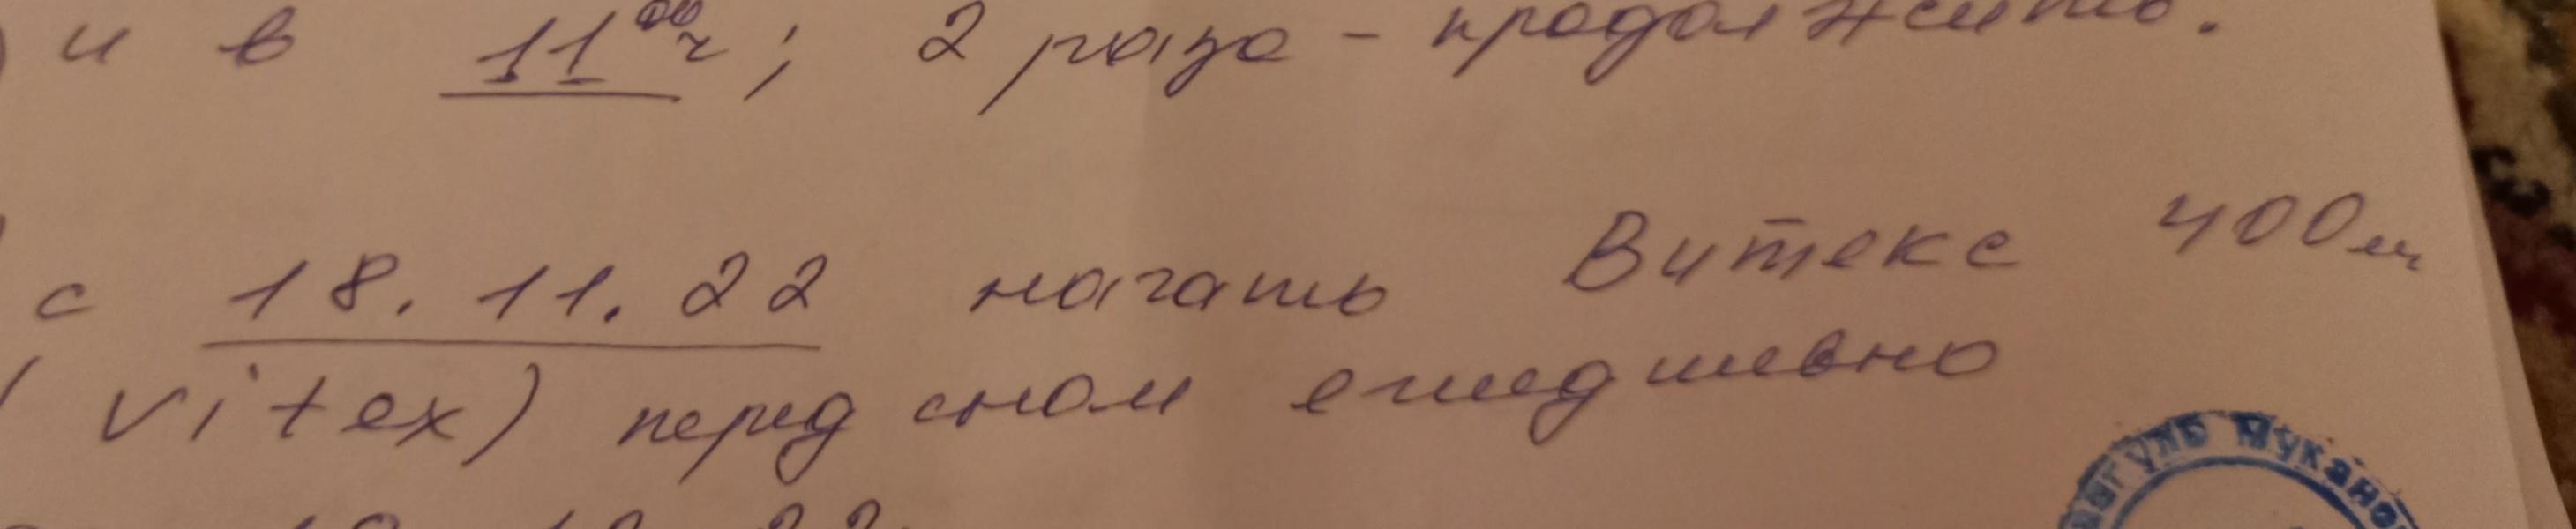 и в 11 00 ч; 2 раза - продолжить.
с 18.11.22 начать Витекс 400 мг
(vitex) перед сном ежедневно
гуль Мукано